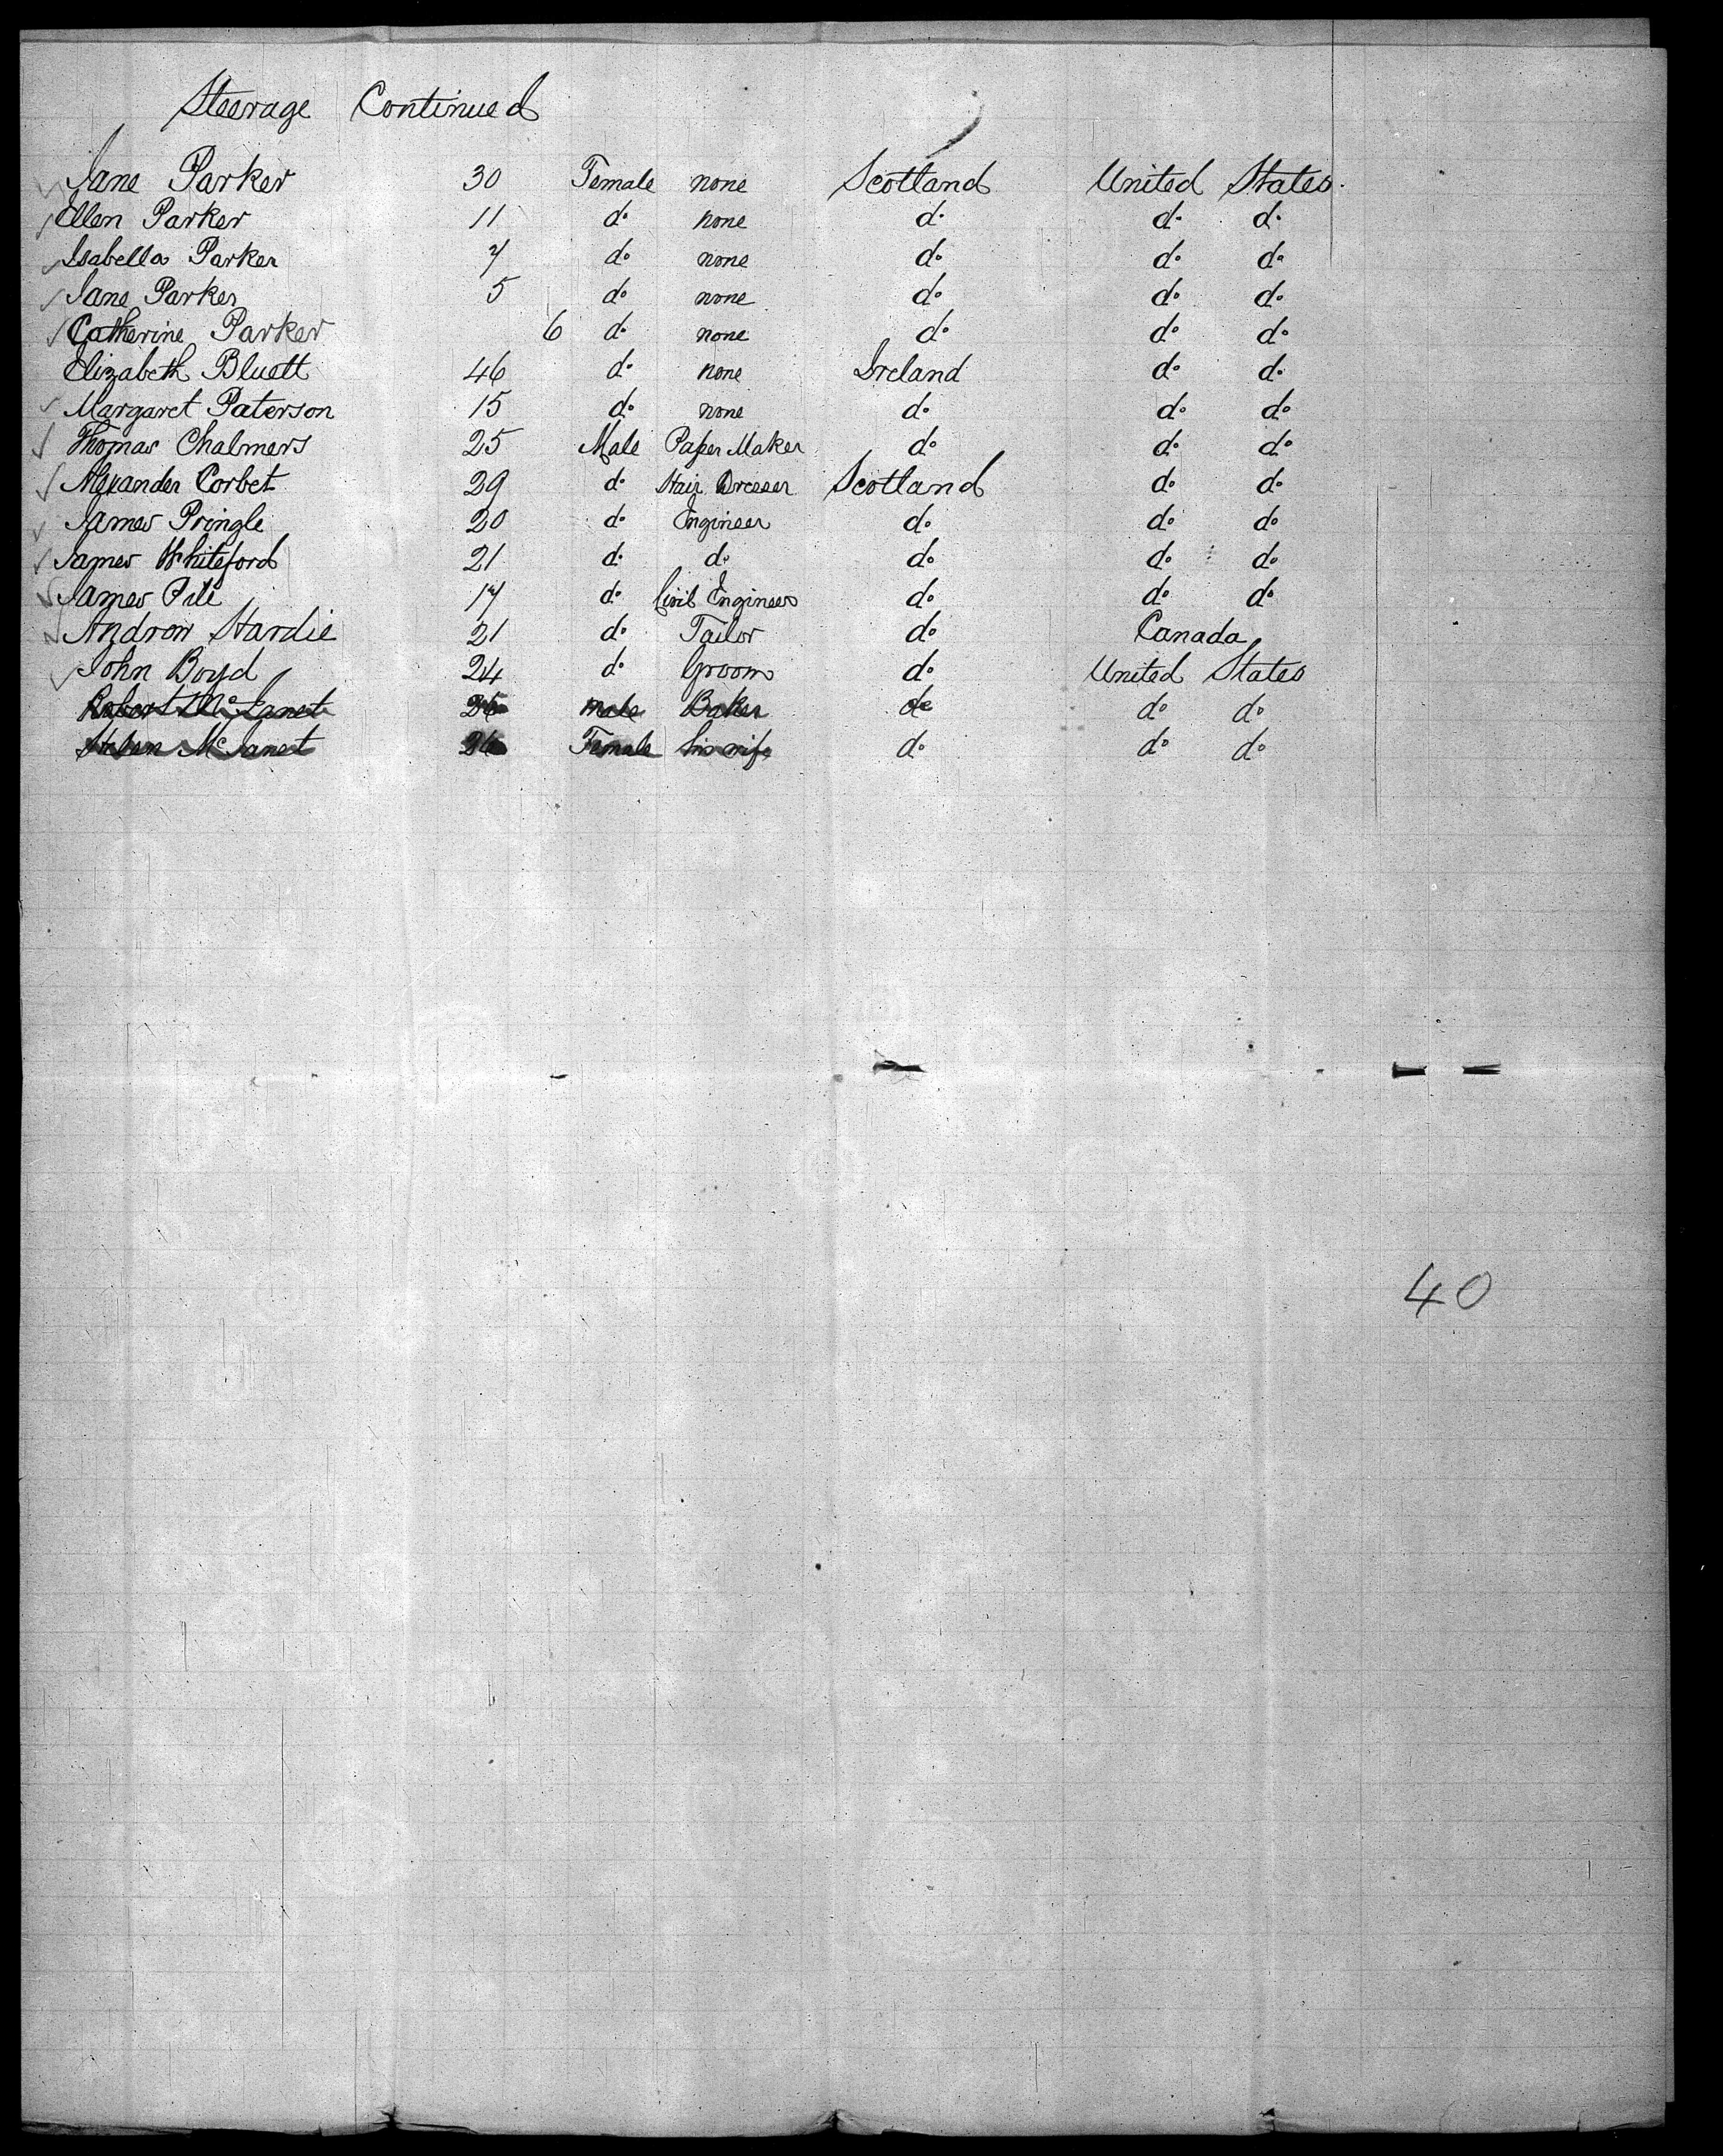 Steerage Continued
Jane Parker 30 Female none Scotland United States.
Ellen Parker 11 do none do do do
Isabella Parker 7 do none do do do
Jane Parker 5 do none do do do
Catherine Parker 6 do none do do do
Elizabeth Bluett 46 do none Ireland do do
Margaret Paterson 15 do none do do do
Thomas Chalmers 25 Male Paper Maker do do do
Alexander Corbet 29 do Hair Dresser Scotland do do
James Pringle 20 do Engineer do do do
James Whiteford 21 do do do do do
James 17 do Civil Engineer do do do
Andrew Hardie 21 do Tailor do Canada
John Boyd 24 do Groom do United States
Robert McJanet male Baker do do do
Helen McJanet 26 Female his wife do do do
40